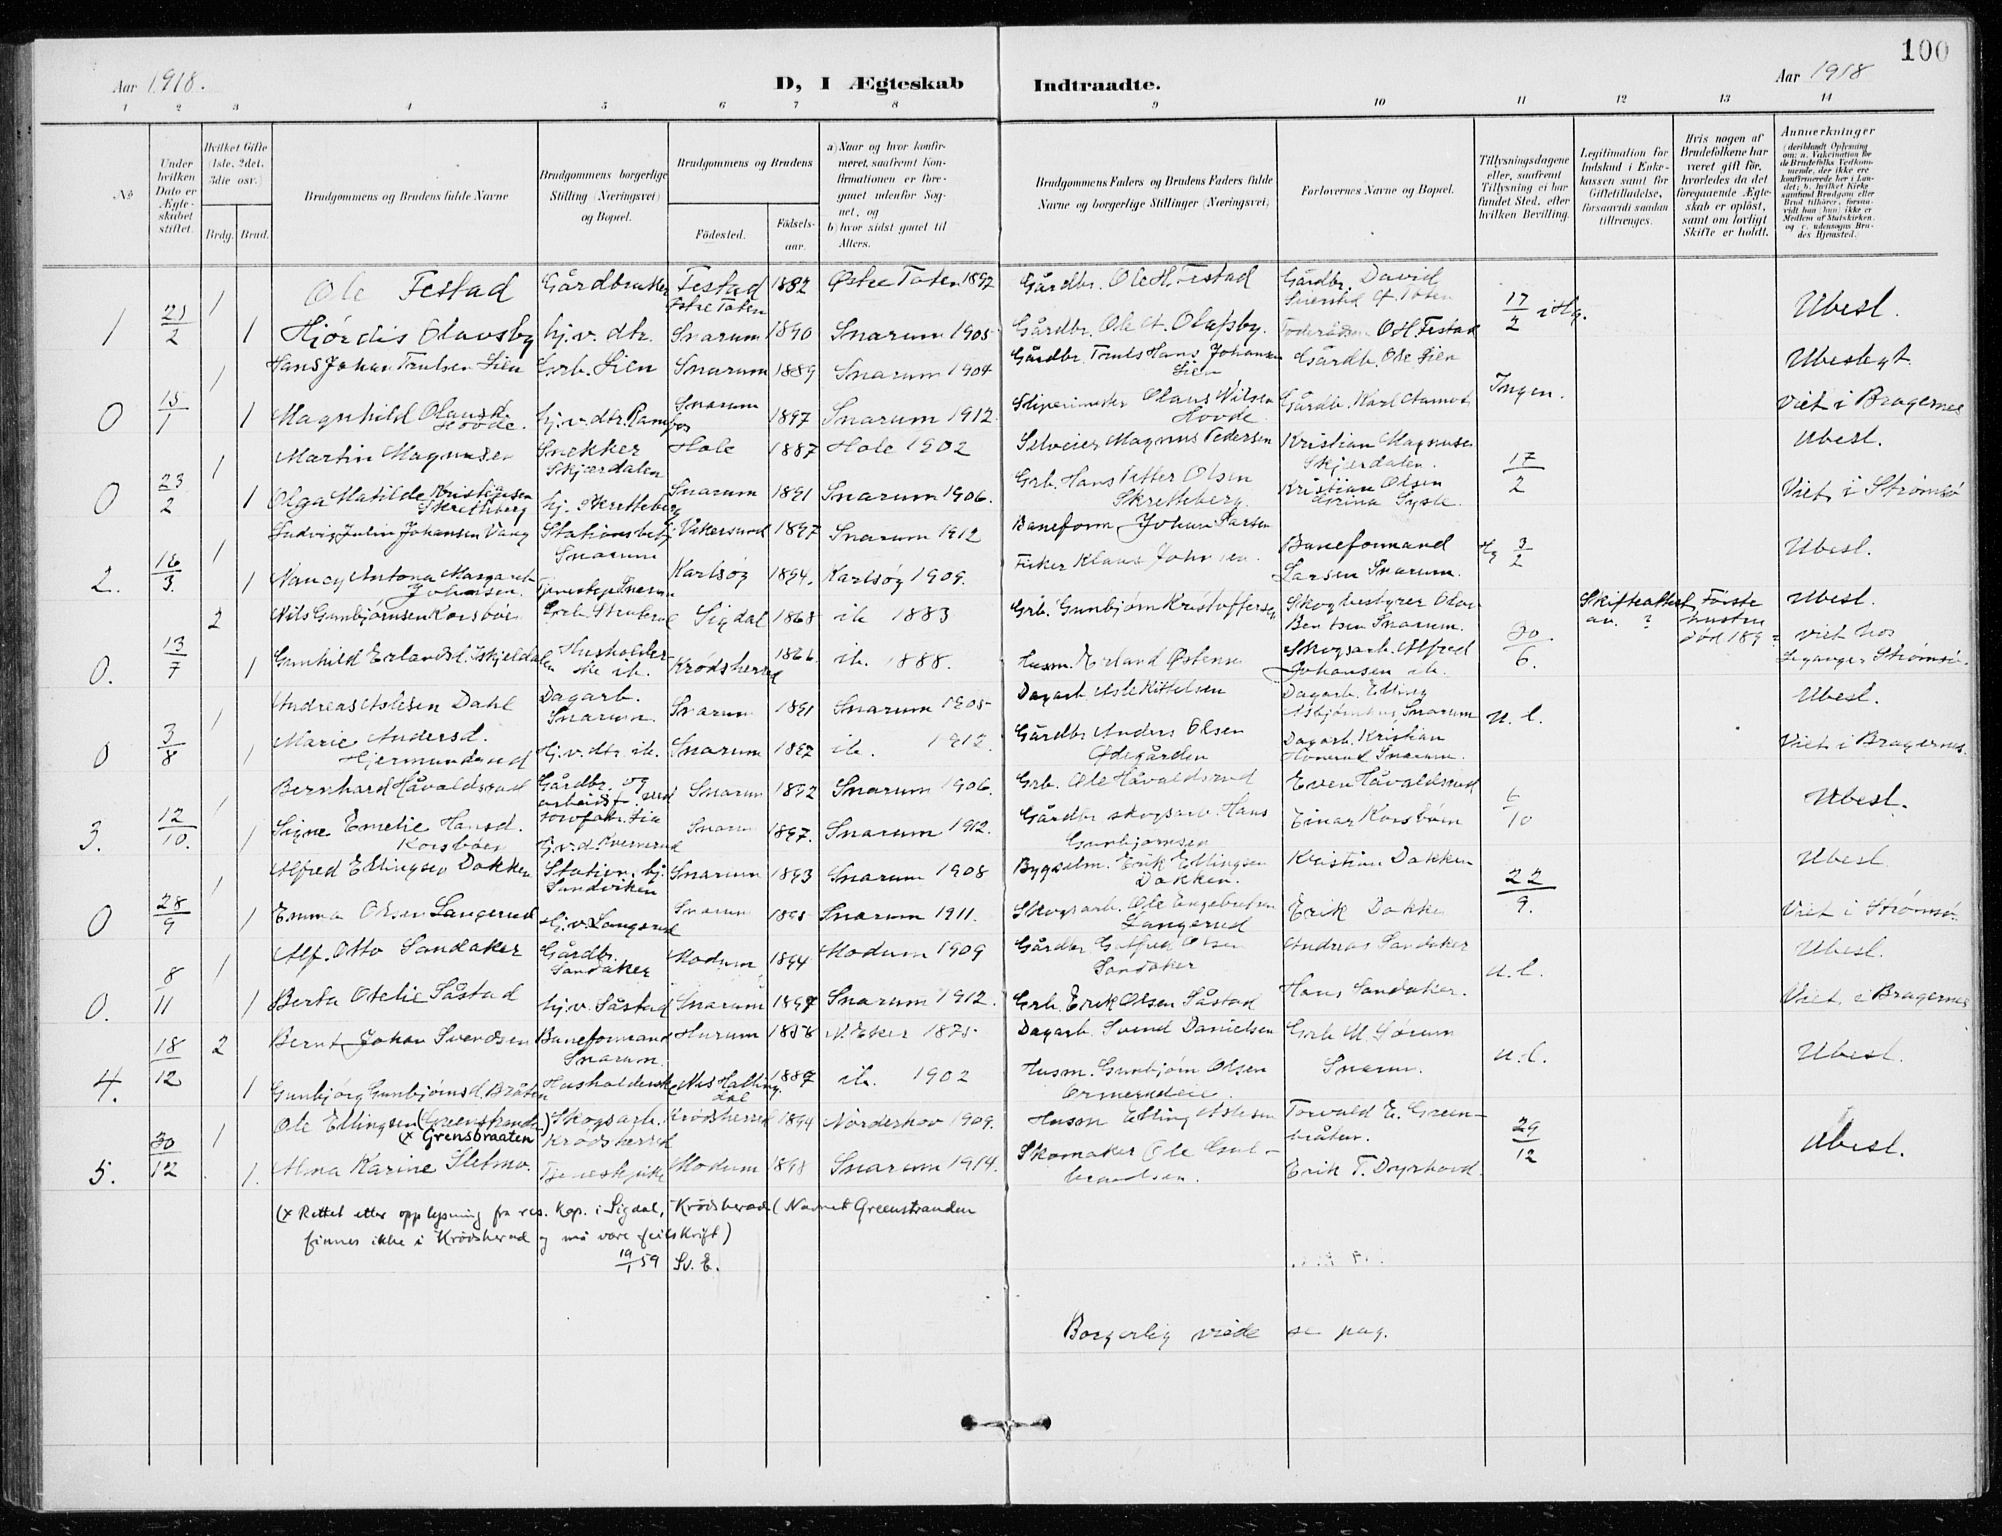 100
Aar 1918.
D, I Ægteskab Indtraadte.
Aar 1918
1 2 3 4 5 6 7 8 9 10 11 12 13 14
No
Under hvilken Dato er Ægte-skabet stiftet.
Hvilket Gifte (1ste, 2det, 3die osv.)
Brdg. Brud.
Brudgommens og Brudens fulde Navne
Brudgommens borgerlige Stilling (Næringsvei) og Bopæl.
Brudgommens og Brudens
Fødested.
Fødsels-aar.
a) Naar og hvor konfir-meret, saafremt Kon-firmationen er fore-gaaet udenfor Sog-net, og b) hvor sidst gaaet til Alters.
Brudgommens Faders og Brudens Faders fulde Navne og borgerlige Stillinger (Næringsvei)
Forlovernes Navne og Bopæl.
Tillysningsdagene eller, saafremt Tillysning ei har fundet Sted, efter hvilken Bevilling.
Legitimation for Indskud i Enke-kassen samt for Giftetilladelse, forsaavidt saadan tiltrænges.
Hvis nogen af Brudefolkene har været gift før, hvorledes da det foregaaende Ægte-skab er opløst, samt om lovligt Skifte er holdt.
Anmerkninger (deriblandt Oplysning om: a. Vakcination for de Brudefolks Vedkom-mende, der ikke ere konfirmerede her i Lan-det; b. hvilket Kirke-samfund Brudgom eller Brud tilhører, forsaa-vidt han (hun) ikke er Medlem af Statskirken, og c. udensogns Bru-des Hjemsted.
1 Ole Festad Gårdbruker Festad Østre Toten 1882 Østre Toten 1897 Gårdbr. Ole H. Festad Gårdbr. David
21/2 1 1 Hjørdis Olavsby hj.v. dtr. Snarum 1890 Snarum 1905 Gårdbr. Ole A. Olafsby. O H. Festad 17/2 i Hg. Ubesl.
Hans Johan Trulsen Lien Grb. Lien Snarum 1889 Snarum 1904 Gårdbr. Truls Hans Johansen Lien Gårdb. Ole Lien Ubeslegt.
0 15/1 1 1 Magnhild Olausd. Hovde. hj.v. dtr. Ramfos Snarum 1897 Snarum 1912. Sliperimester Olaus Nilsen Hovde Gårdb. Karl Aamot Ingen. Viet i Bragernes
Martin Magnusen Snekker Skjærdalen Hole 1887 Hole 1902 Magnus Pedersen Kristian Magnusen Skjærdalen. Ubesl.
0 23/2 1 1 Olga Matilde Kristiansen Skretteberg hj. Skretteberg Snarum 1891 Snarum 1906. Grb. Hans Petter Olsen Skretteberg. Kristian Olsen 17/2 Viet i Strømsø
Ludvig Julin Johansen Vang Stationsbetj. Snarum Vikersund 1897 Snarum 1912 Baneform. Johan Larsen Baneformand Ubesl.
2. 16/3. 1 1 Nancy Antona Margaret Johnsen. Tjenestepi Snarum Karlsøy 1894. Karlsøy 1909. Fisker Klaus Johnsen. Larsen Snarum. Hg 3/2
Nils Gunbjørnsen Korsbøen Sigdal 1868 ib 1883 Grb. Gunbjørn Kristoffersen Skogbestyrer Olav Bentsen Snarum. Skifteattest av. ? Første hustru død 189? Ubesl.
0. 13/7 2 1 Gunhild Erlandsd. Husholder-ske ib. Krødsherred 1866. ib. 1888. Husm. Erland Østensen Skogsarb. Alfred Johansen ib. 30/6. viet hos Strømsø.
Andreas Aslesen Dahl Dagarb. Snarum. Snarum 1891 Snarum 1905 Dagarb Asle Kittelsen Dagarb. Elling Snarum Ubesl.
0 3/8 1 1 Marie Andersd. Hjermundrud Hj.v. dtr. ib. Snarum 1897 ib. 1912. Gårdbr Anders Olsen Ødegården Dagarb. Kristian Snarum. u. l. Viet i Bragernes.
Bernhard Håvaldsrud Gårdbr. og arbeidsf. ved Snarum 1892 Snarum 1906. Grb. Ole Håvaldsrud Even Håvaldsrud
3. 12/10. 1 Signe Emelie Hansd. Korsbøen Snarum 1897. Snarum 1912. Gårdbr skogsarb. Hans Gunbjørnsen Einar Korsbøen 6/10 Ubesl.
Alfred Ellingsen Dokken Station. bj. Sandviken Snarum 1893 Snarum 1908 Bygselm. Erik Ellingsen Dokken. Kristian Dokken Ubesl.
0 28/9 1 1 Emma Olsen Langerud Hj.v. Langerud Snarum 1895 Snarum 1911. Skogsarb. Ole Engebretsen Langerud Erik Dokken 22/9. Viet i Strømsø.
Alf. Otto Sandaker Gårdbr. Sandaker Modum. 1894 Modum 1909 Gårdbr Gotfred Olsen Sandaker Andreas Sandaker Ubesl.
0. 8/11 1 1 Berta Otelie Såstad hj.v. Såstad Snarum 1897 Snarum 1912. Grb. Erik Olsen Såstad Hans Sandaker. u. l. Viet i Bragernes
Bernt Johan Svendsen Baneformand Snarum. Hurum 1858 N. Eker 1875 Dagarb. Svend Danielsen Grb M. Sørum
4. 18/12 2 1 Gunbjørg Gunbjørnsd. Bråten Husholdersk Nes Hallingdal 1887 ib. 1902 Husm. Gunbjørn Olsen Snarum. u. l. Ubesl.
Ole Ellingsen (Greenstranden) (x Grensbraaten Skogsarb. Krødsherred Krødsherred 1894 Norderhov 1909. Husm Elling Aslesen Torvald E. Green-bråten.
5. 30/12 1 1. Alma Karine Sletmo. Modum 1898 Snarum 1914. Skomaker Ole Gul-brandsen. Erik T. Dyrhovd. 29/12 Ubesl.
(x Rettet etter opplysning fra res. kap. i Sigdal, Krødsherad (Navnet Greenstranden
finnes ikke i Krødsherad og må være feilskrift)
19/1 59 Sv. E.
Borgerlig viede se pag.